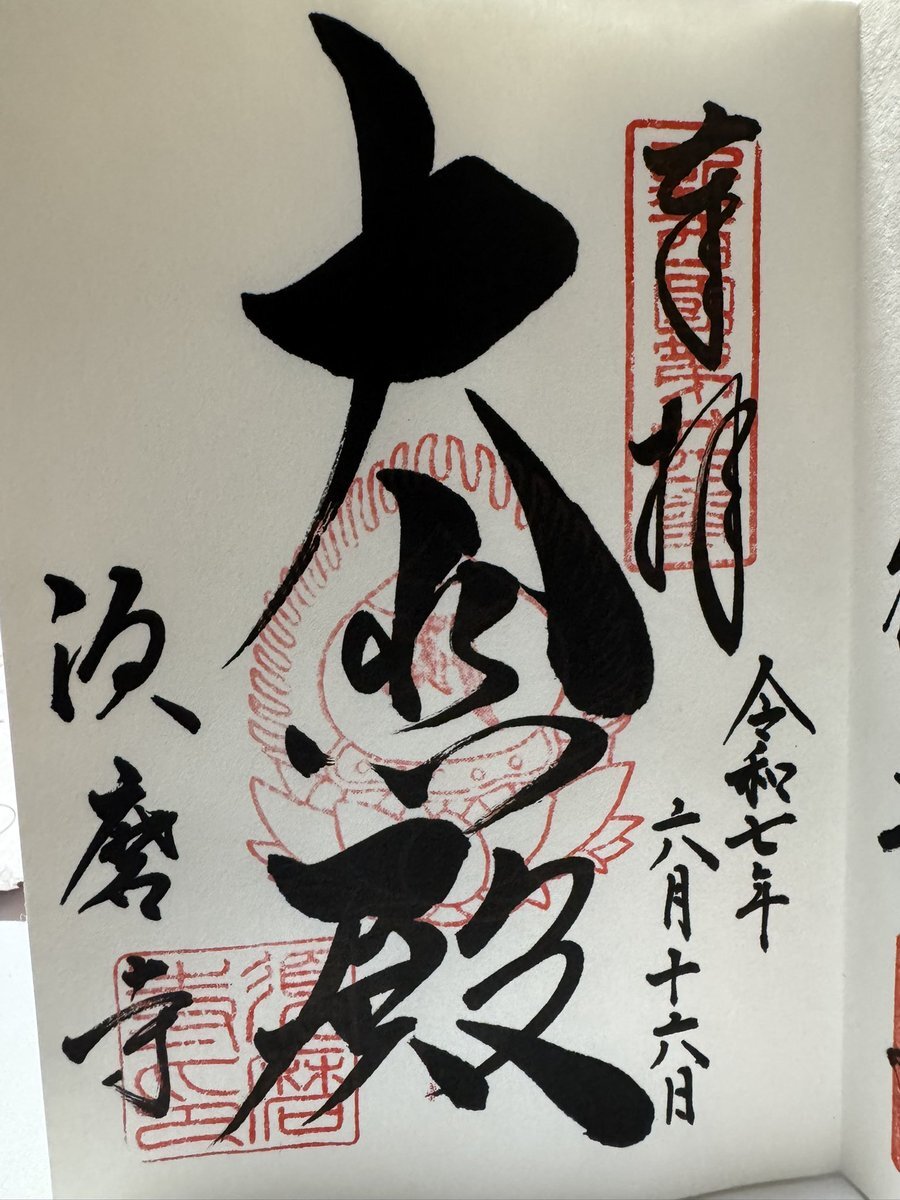 奉拝
令和七年
六月十六日
大悲殿
須磨寺